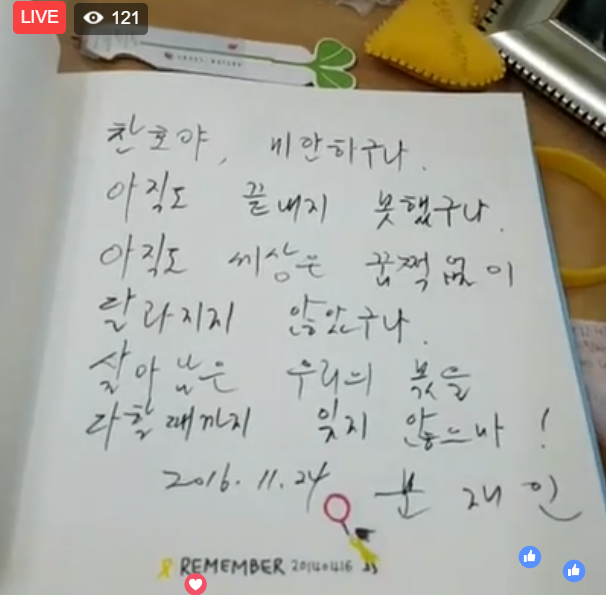 LIVE 121
찬호야, 미안하구나.
아직도 끝내지 못했구나.
아직도 세상은 끔찍없이
달라지지 않았구나.
살아남은 우리의 몫을
다할때까지 잊지 않으마!
2016. 11. 24 문재인
REMEMBER 20140416